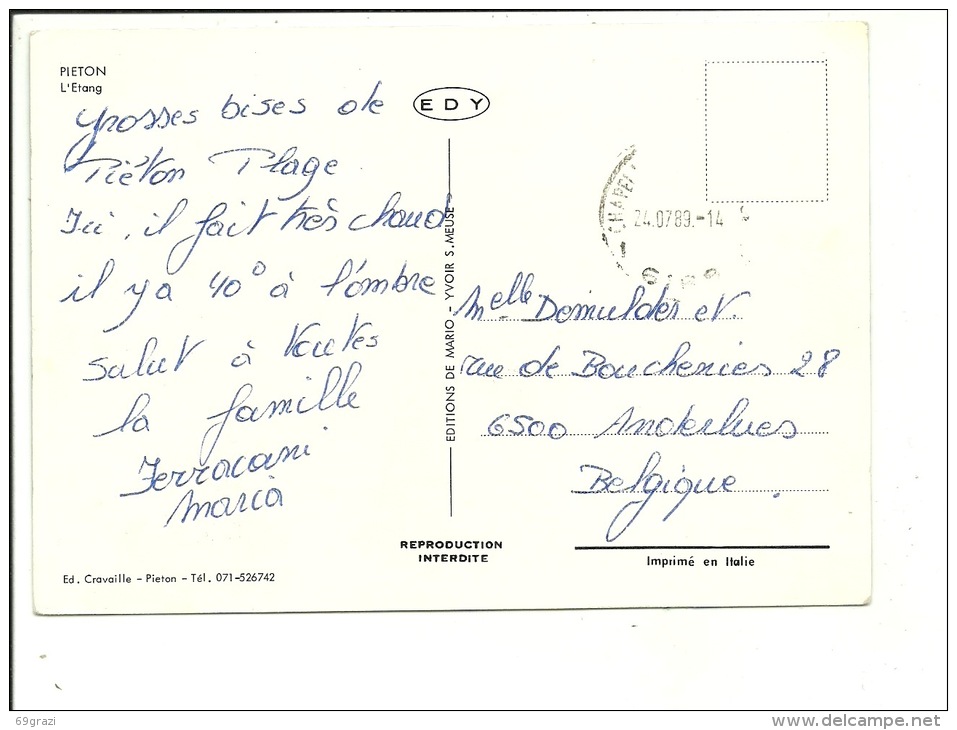 PIETON
L'Etang
EDY
grosses bises de
Piéton Plage
Ici, il fait très chaud
il y a 40° à l'ombre
salut à toutes
la famille
Terracani
Maria
EDITIONS DE MARIO - YVOIR S. MEUSE
CHAPEL
24.0789.-14
Melle Demulder et
rue de Boucheries 28
6500 Anderlues
Belgique.
REPRODUCTION
INTERDITE
Imprimé en Italie
Ed. Cravaille - Pieton - Tél. 071-526742
69grazi
www.delcampe.net